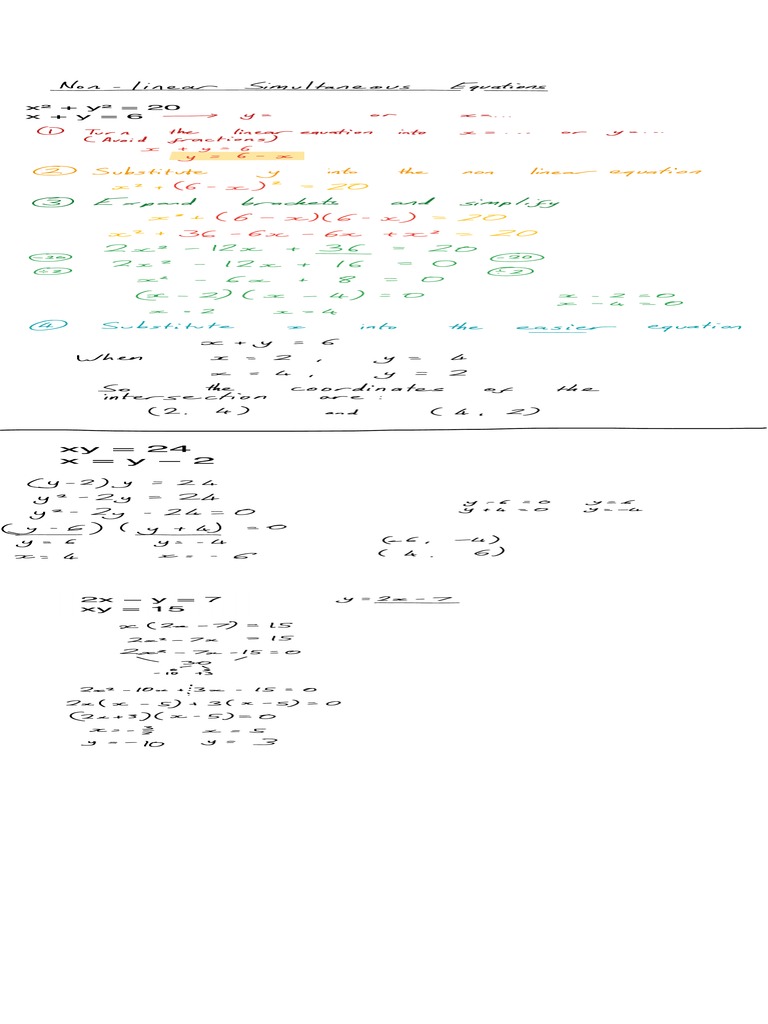 Non-linear Simultaneous Equations
x² + y² = 20
x + y = 6 → y= or x=...
① Turn the linear equation into x=... or y=...
(Avoid fractions)
x + y = 6
y = 6 - x
② Substitute y into the non linear equation
x² + (6 - x)² = 20
③ Expand brackets and simplify
x² + (6 - x)(6 - x) = 20
x² + 36 - 6x - 6x + x² = 20
2x² - 12x + 36 = 20
-20 2x² - 12x + 16 = 0 -20
÷2 x² - 6x + 8 = 0 ÷2
(x - 2)(x - 4) = 0 x - 2 = 0
x = 2 x = 4 x - 4 = 0
④ Substitute x into the easier equation
x + y = 6
When x = 2, y = 4
x = 4, y = 2
So the coordinates of the
intersection are:
(2, 4) and (4, 2)
xy = 24
x = y − 2
(y-2)y = 24
y² - 2y = 24
y² - 2y - 24 = 0
(y - 6)(y + 4) = 0
y = 6 y = -4
x = 4 x = -6
y - 6 = 0 y = 6
y + 4 = 0 y = -4
(-6, -4)
(4, 6)
2x − y = 7 y = 2x - 7
xy = 15
x(2x - 7) = 15
2x² - 7x = 15
2x² - 7x - 15 = 0
30
-10 +3
2x² - 10x + 3x - 15 = 0
2x(x - 5) + 3(x - 5) = 0
(2x+3)(x - 5) = 0
x = -3/2 x = 5
y = -10 y = 3